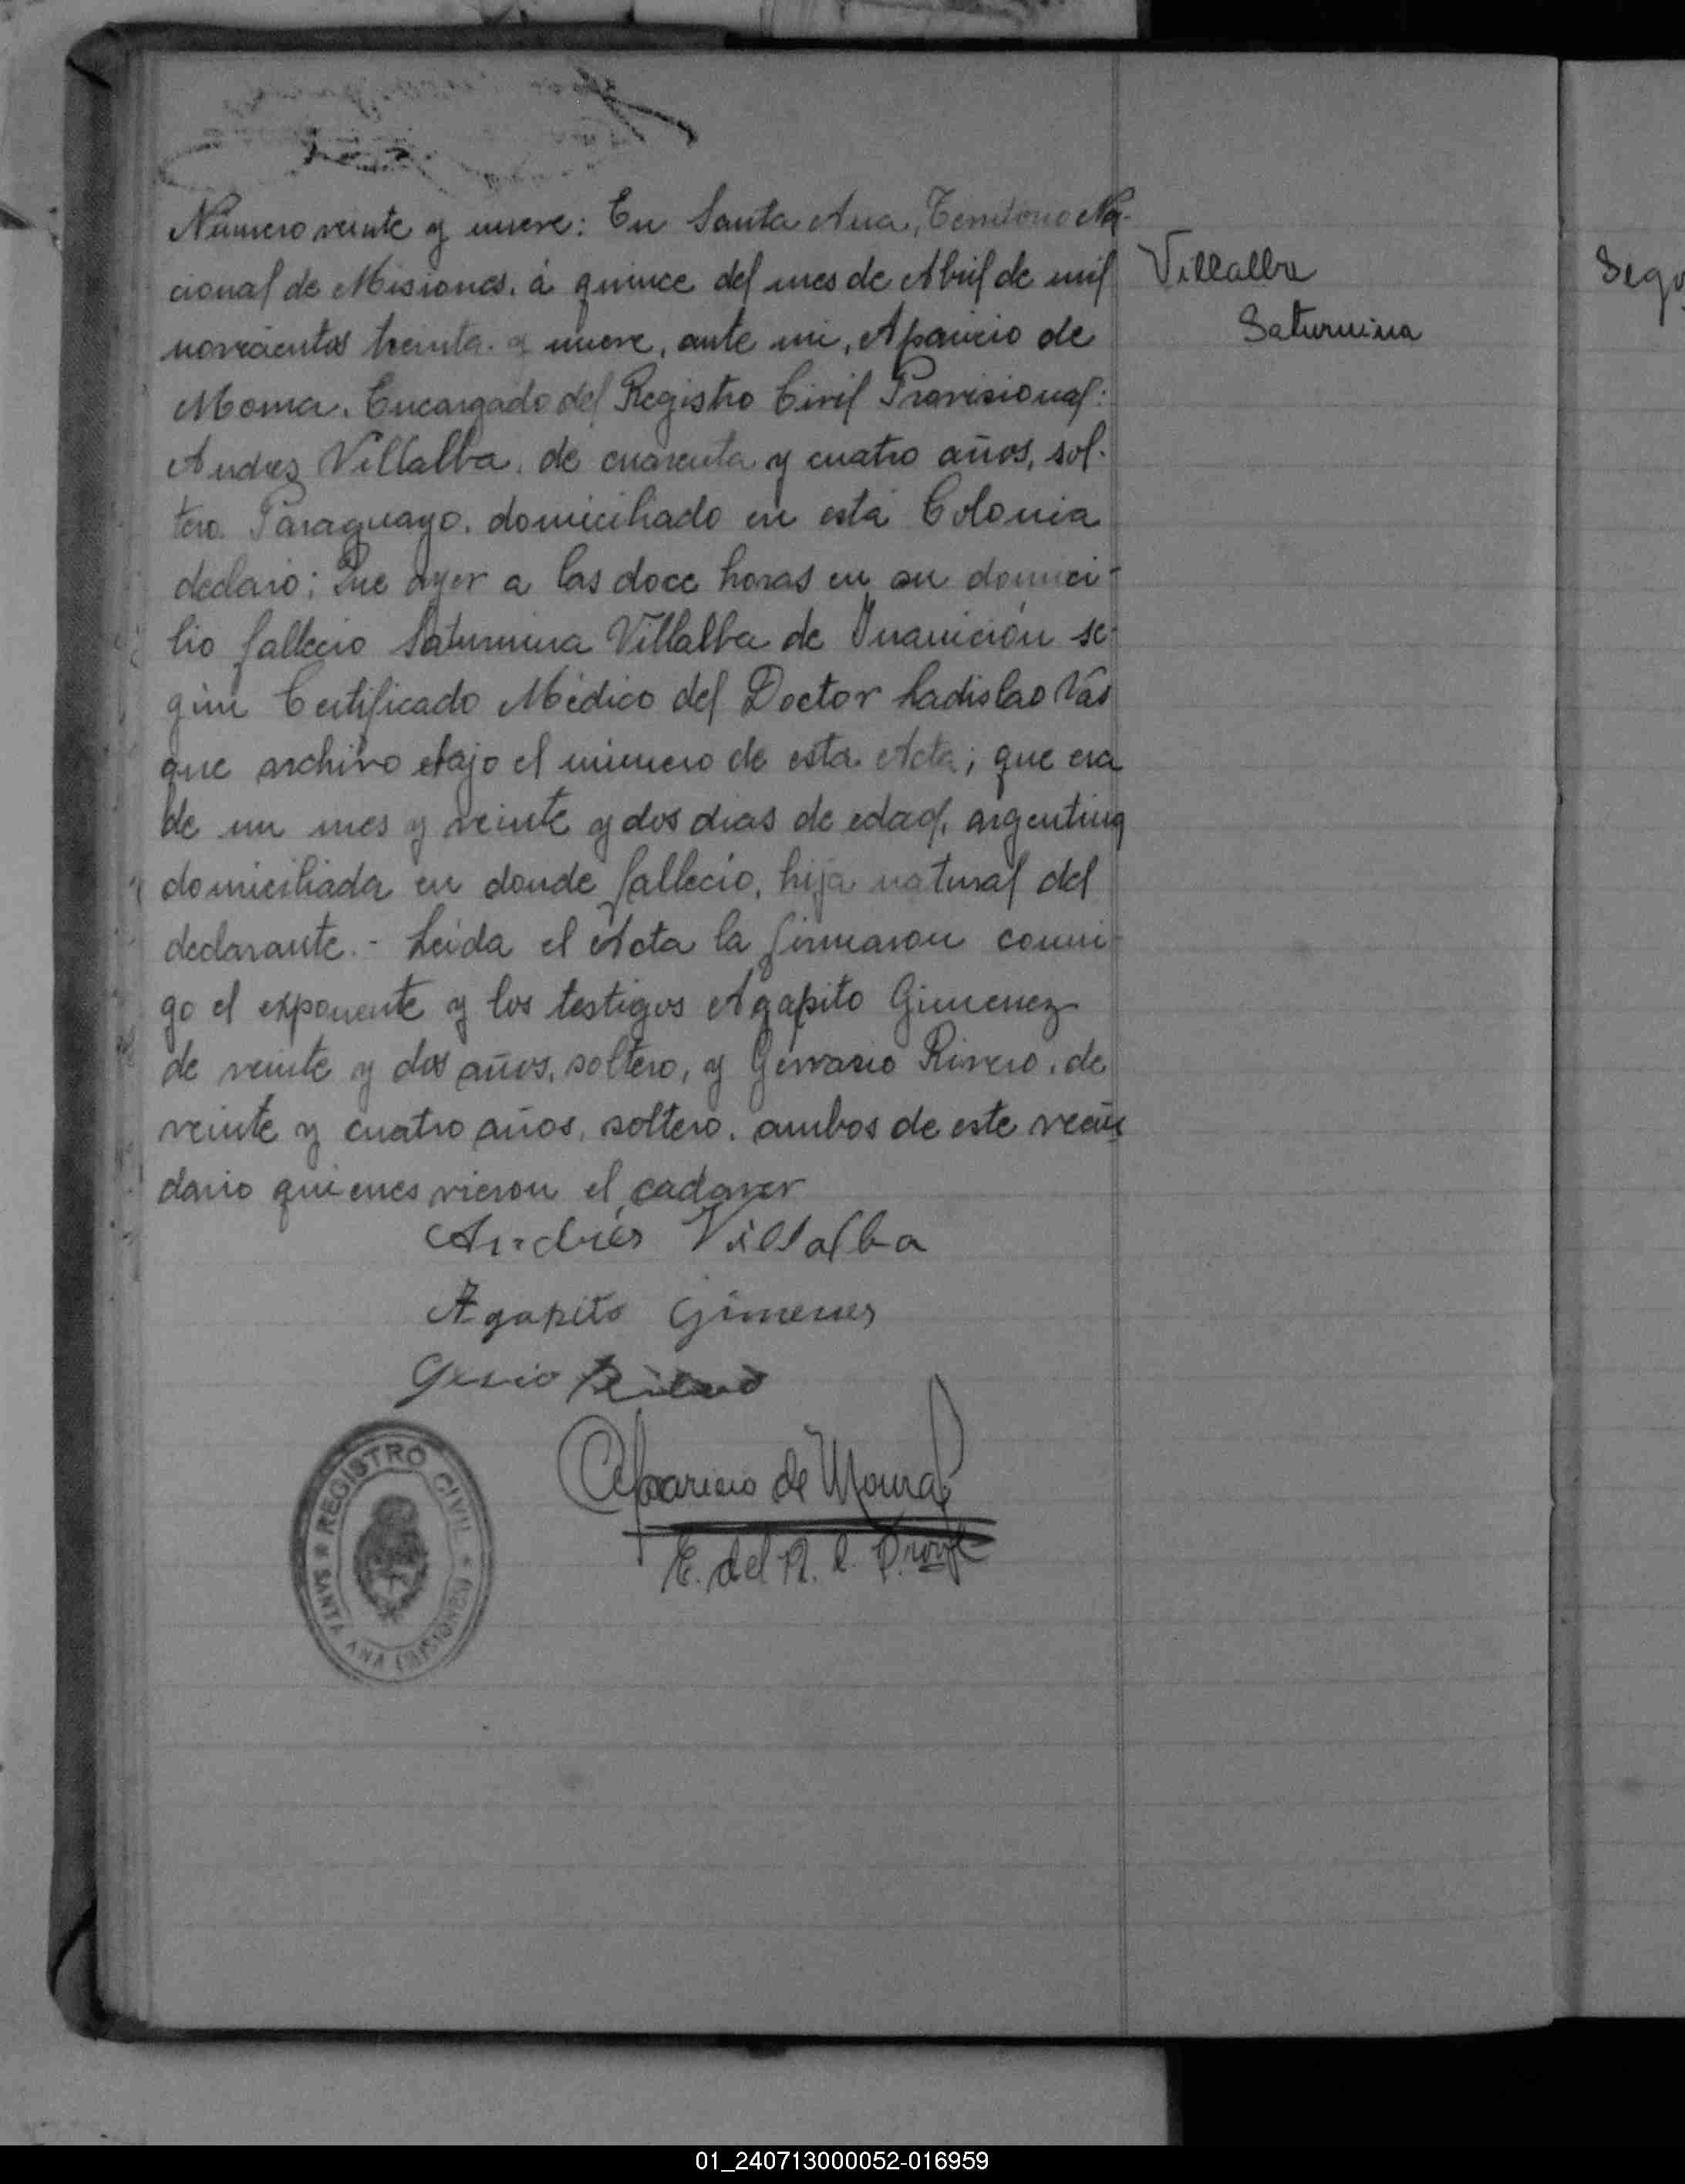 Número veinte y nueve: En Santa Ana, Territorio Na-
cional de Misiones, á quince del mes de Abril de mil
novecientos treinta y nueve, ante mi, Aparicio de
Moura, Encargado del Registro Civil Provisional:
Andres Villalba, de cuarenta y cuatro años, sol-
tero, Paraguayo, domiciliado en esta Colonia
declaro; Que ayer a las doce horas en su domici-
lio fallecio Saturnina Villalba de Inanición se-
gún Certificado Médico del Doctor Ladislao Vas
que archivo bajo el número de esta Acta; que era
de un mes y veinte y dos dias de edad, argentina
domiciliada en donde fallecio, hija natural del
declarante.- Leida el Acta la firmaron conmi-
go el exponente y los testigos Agapito Gimenez
de veinte y dos años, soltero, y Gervasio Rivero, de
veinte y cuatro años, soltero, ambos de este vecin
dario quienes vieron el cadaver
Villalba
Saturnina
Andrés Villalba
Agapito Gimenes
Aparicio de Moura
E. del R. C. Provl
REGISTRO CIVIL
SANTA ANA (MISIONES)
Segu
01_240713000052-016959